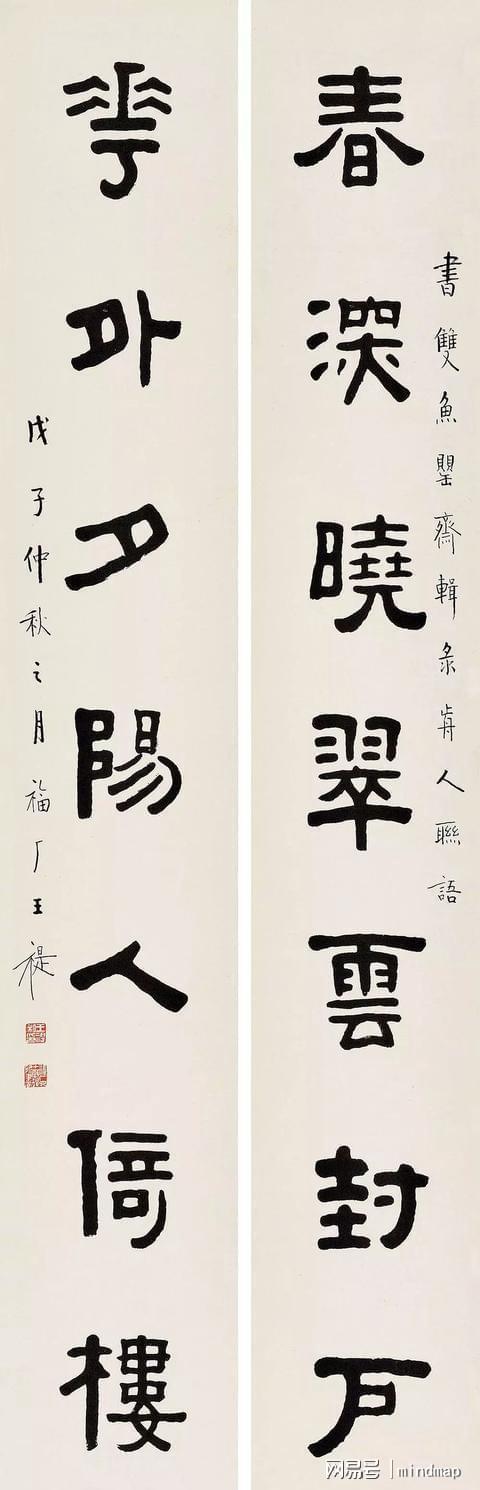 書雙魚罌齋輯彔前人聯語
春深曉翠雲封戶
花外夕陽人倚樓
戊子仲秋之月福厂王禔
网易号 | mindmap